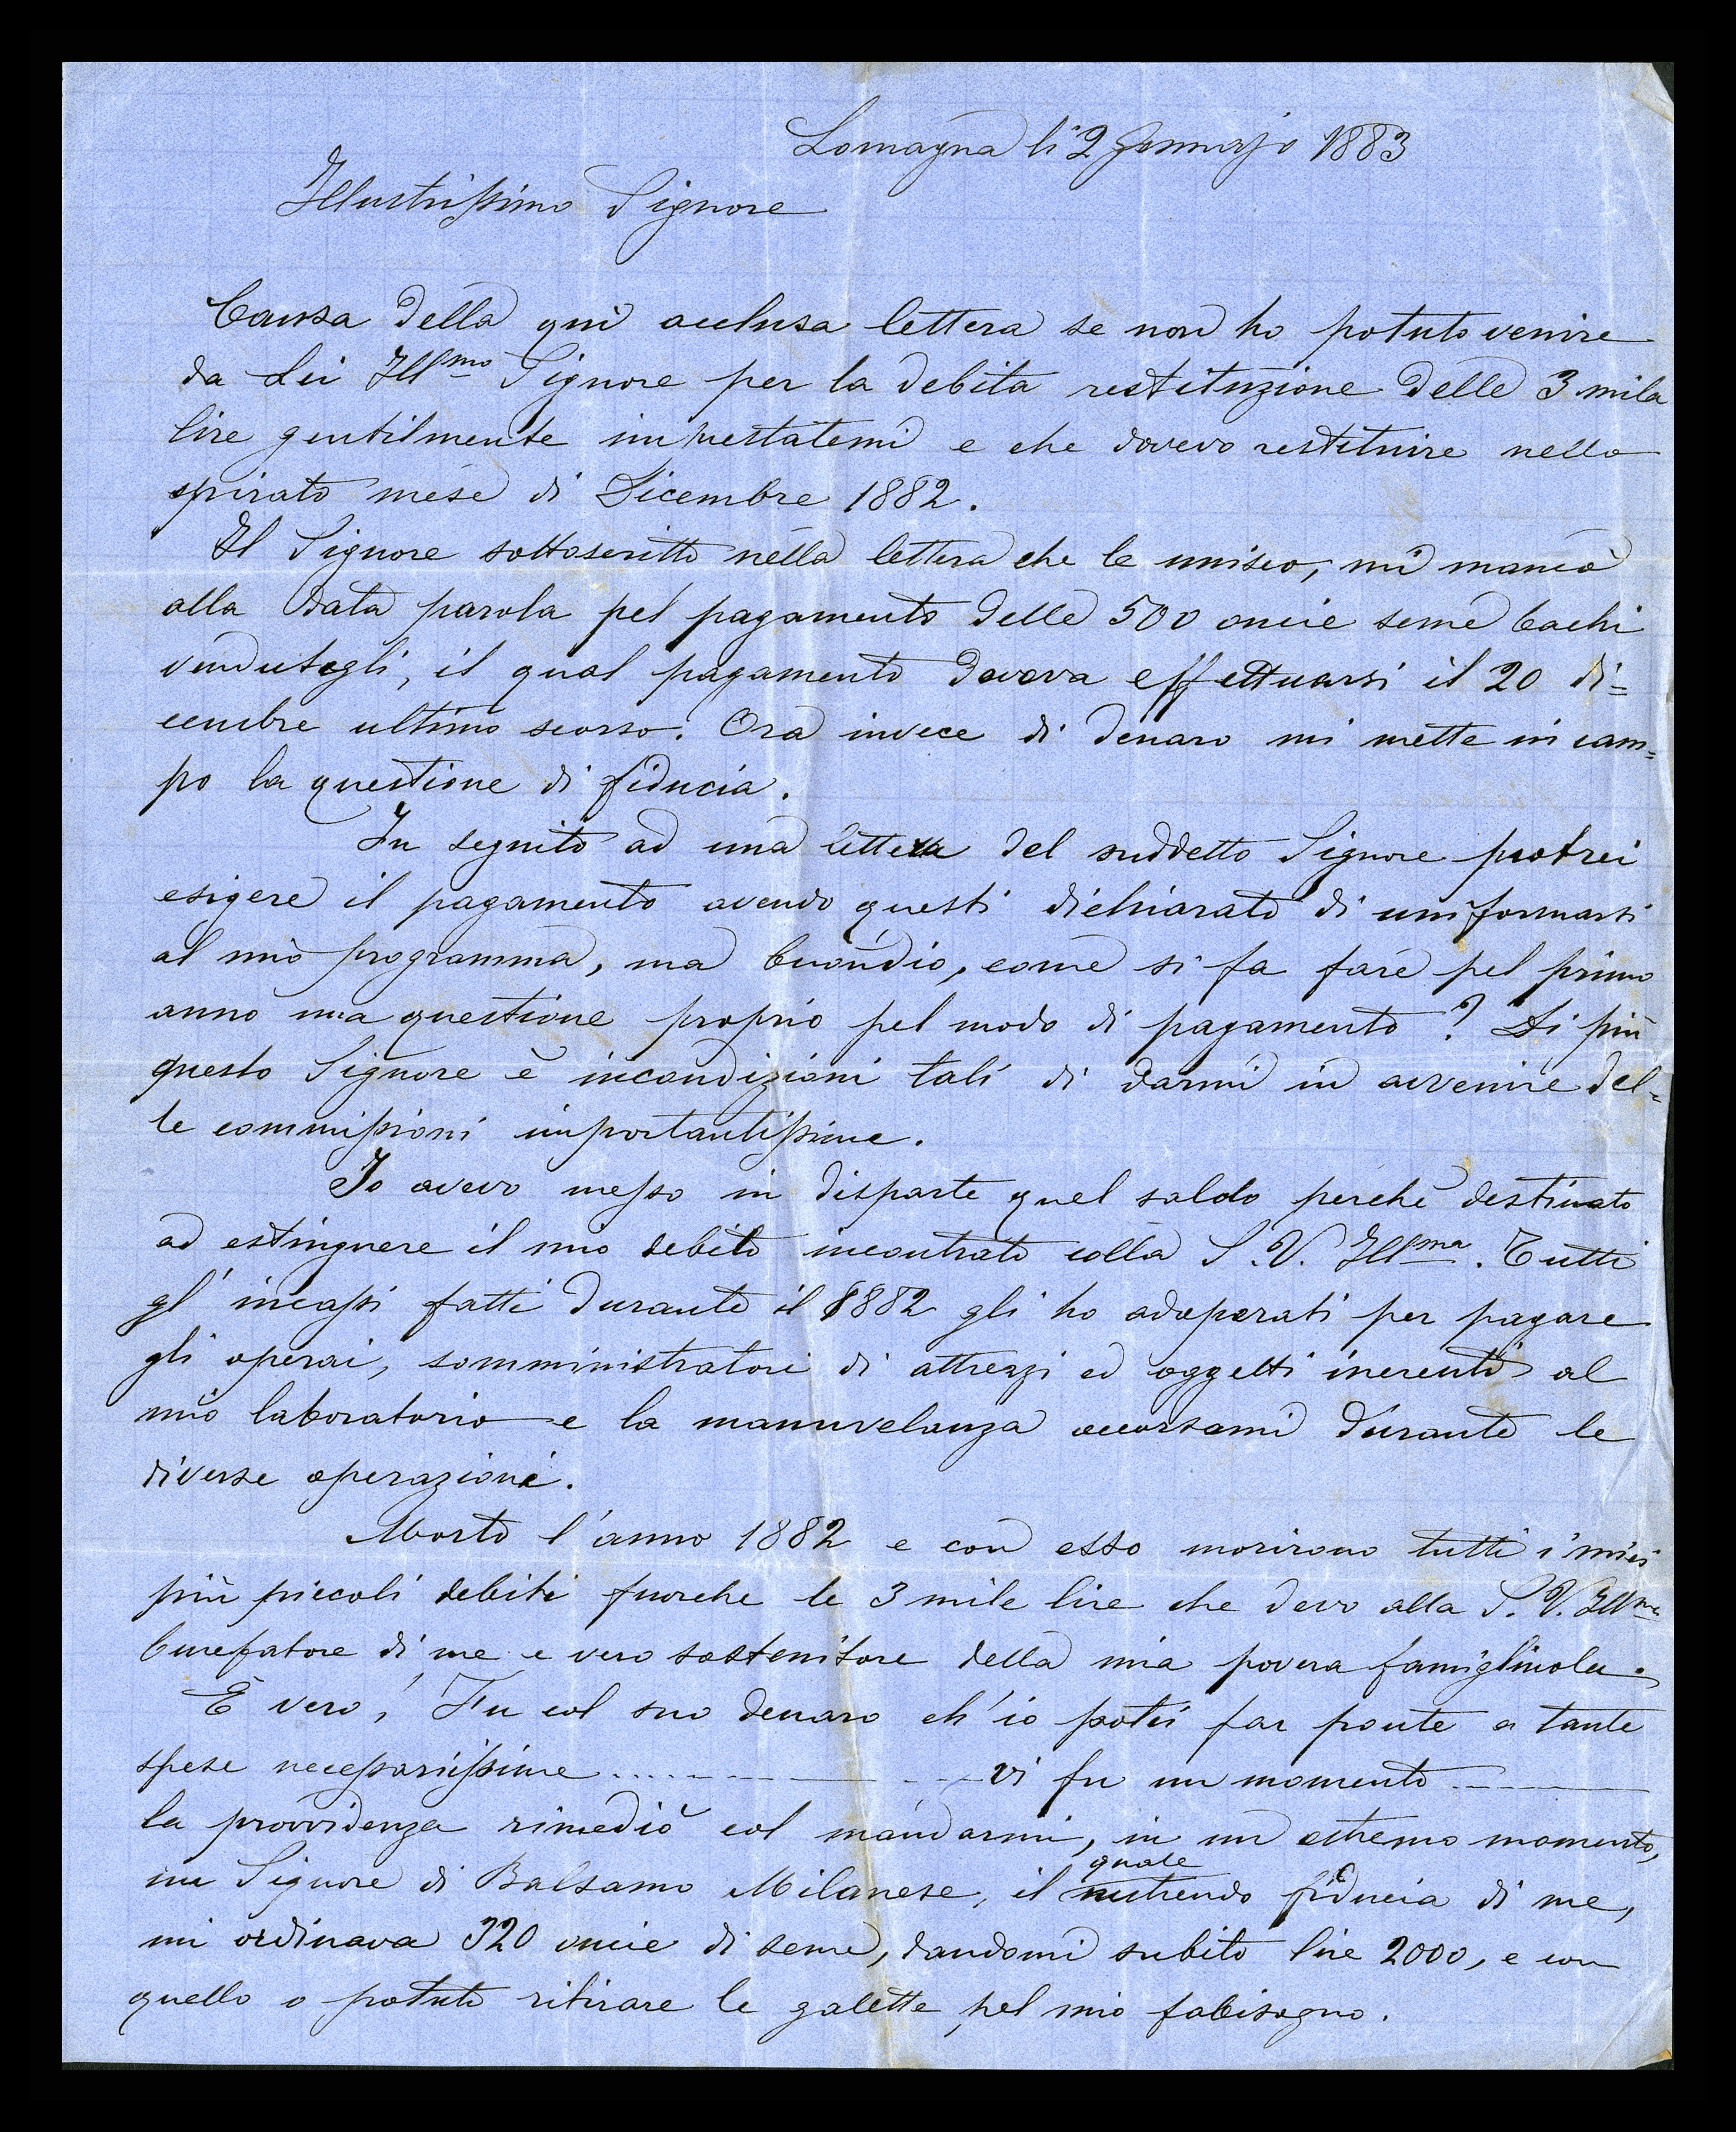 Lomagna li 2 Gennajo 1883
Illustrissimo Signore
Causa della quì acclusa lettera se non ho potuto venire
da Lei Ill.mo Signore per la debita restituzione delle 3 mila
lire gentilmente imprestatemi e che dovevo restituire nello
spirato mese di Dicembre 1882.
Il Signore sottoscritto nella lettera che le unisco, mi mancò
alla data parola pel pagamento delle 500 oncie seme bachi
vendutegli, il qual pagamento doveva effettuarsi il 20 di=
cembre ultimo scorso. Ora invece di denaro mi mette in cam=
po la questione di fiducia.
In seguito ad una lettera del suddetto Signore potrei
esigere il pagamento avendo questi dichiarato di uniformarsi
al mio programma, ma buondio, come si fa fare pel primo
anno una questione proprio pel modo di pagamento? Di più
questo Signore è in condizioni tali di darmi in avvenire del=
le commissioni importantissime.
Io avevo messo in disparte quel saldo perchè destinato
ad estinguere il mio debito incontrato colla S. V. Ill.ma. Tutti
gl'incassi fatti durante il 1882 gli ho adoperati per pagare
gli operai, somministratori di attrezzi ed oggetti inerenti al
mio laboratorio e la manuvelanza occorsami durante le
diverse operazioni.
Morto l'anno 1882 e con esso morirono tutti i miei
più piccoli debiti fuorche le 3 mile lire che devo alla S. V. Ill.ma
benefatore di me e vero sostenitore della mia povera famigliuola.
È vero, Fu col suo denaro ch'io potei far ponte a tante
spese necessarissime ........ vi fu un momento ........
la provvidenza rimediò col mandarmi, in un estremo momento,
un Signore di Balsamo Milanese, il quale nutrendo fiducia di me,
mi ordinava 320 oncie di seme, dandomi subito lire 2000, e con
quello o potuto ritirare le galette pel mio fabisogno.